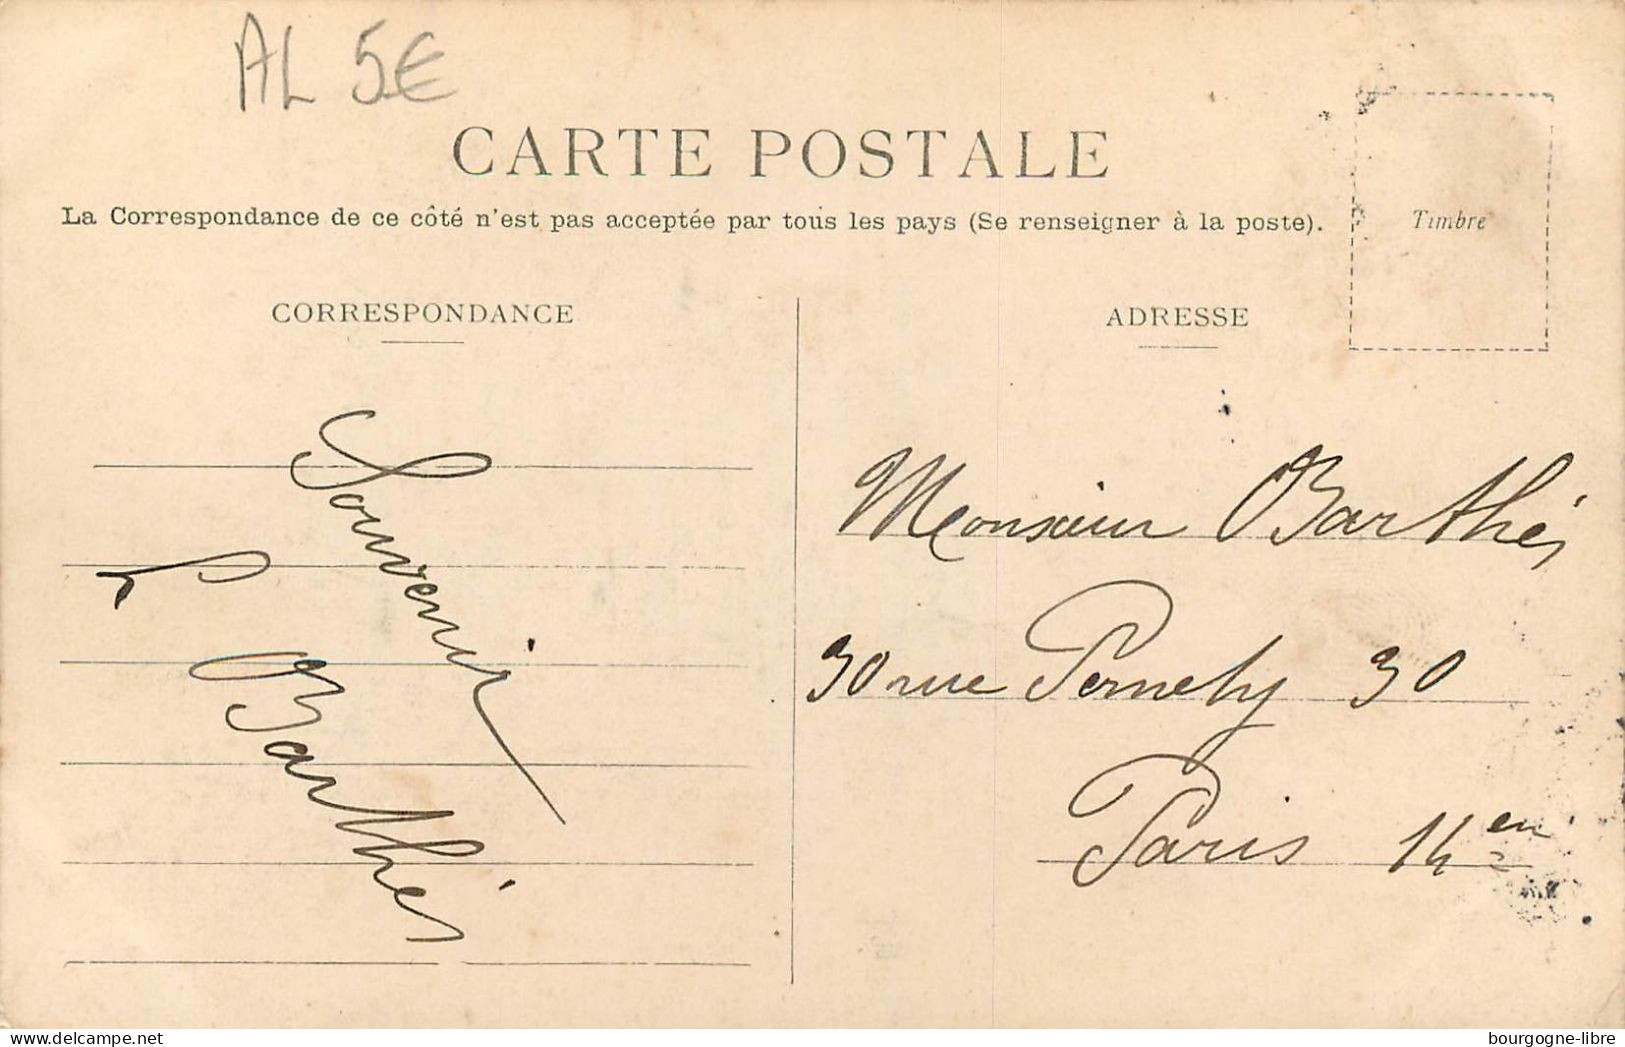 AL 5€
CARTE POSTALE
La Correspondance de ce côté n'est pas acceptée par tous les pays (Se renseigner à la poste).
Timbre
CORRESPONDANCE
Souvenir
Barthés
ADRESSE
Monsieur Barthés
30 rue Pernety 30
Paris 14 en
bourgogne-libre